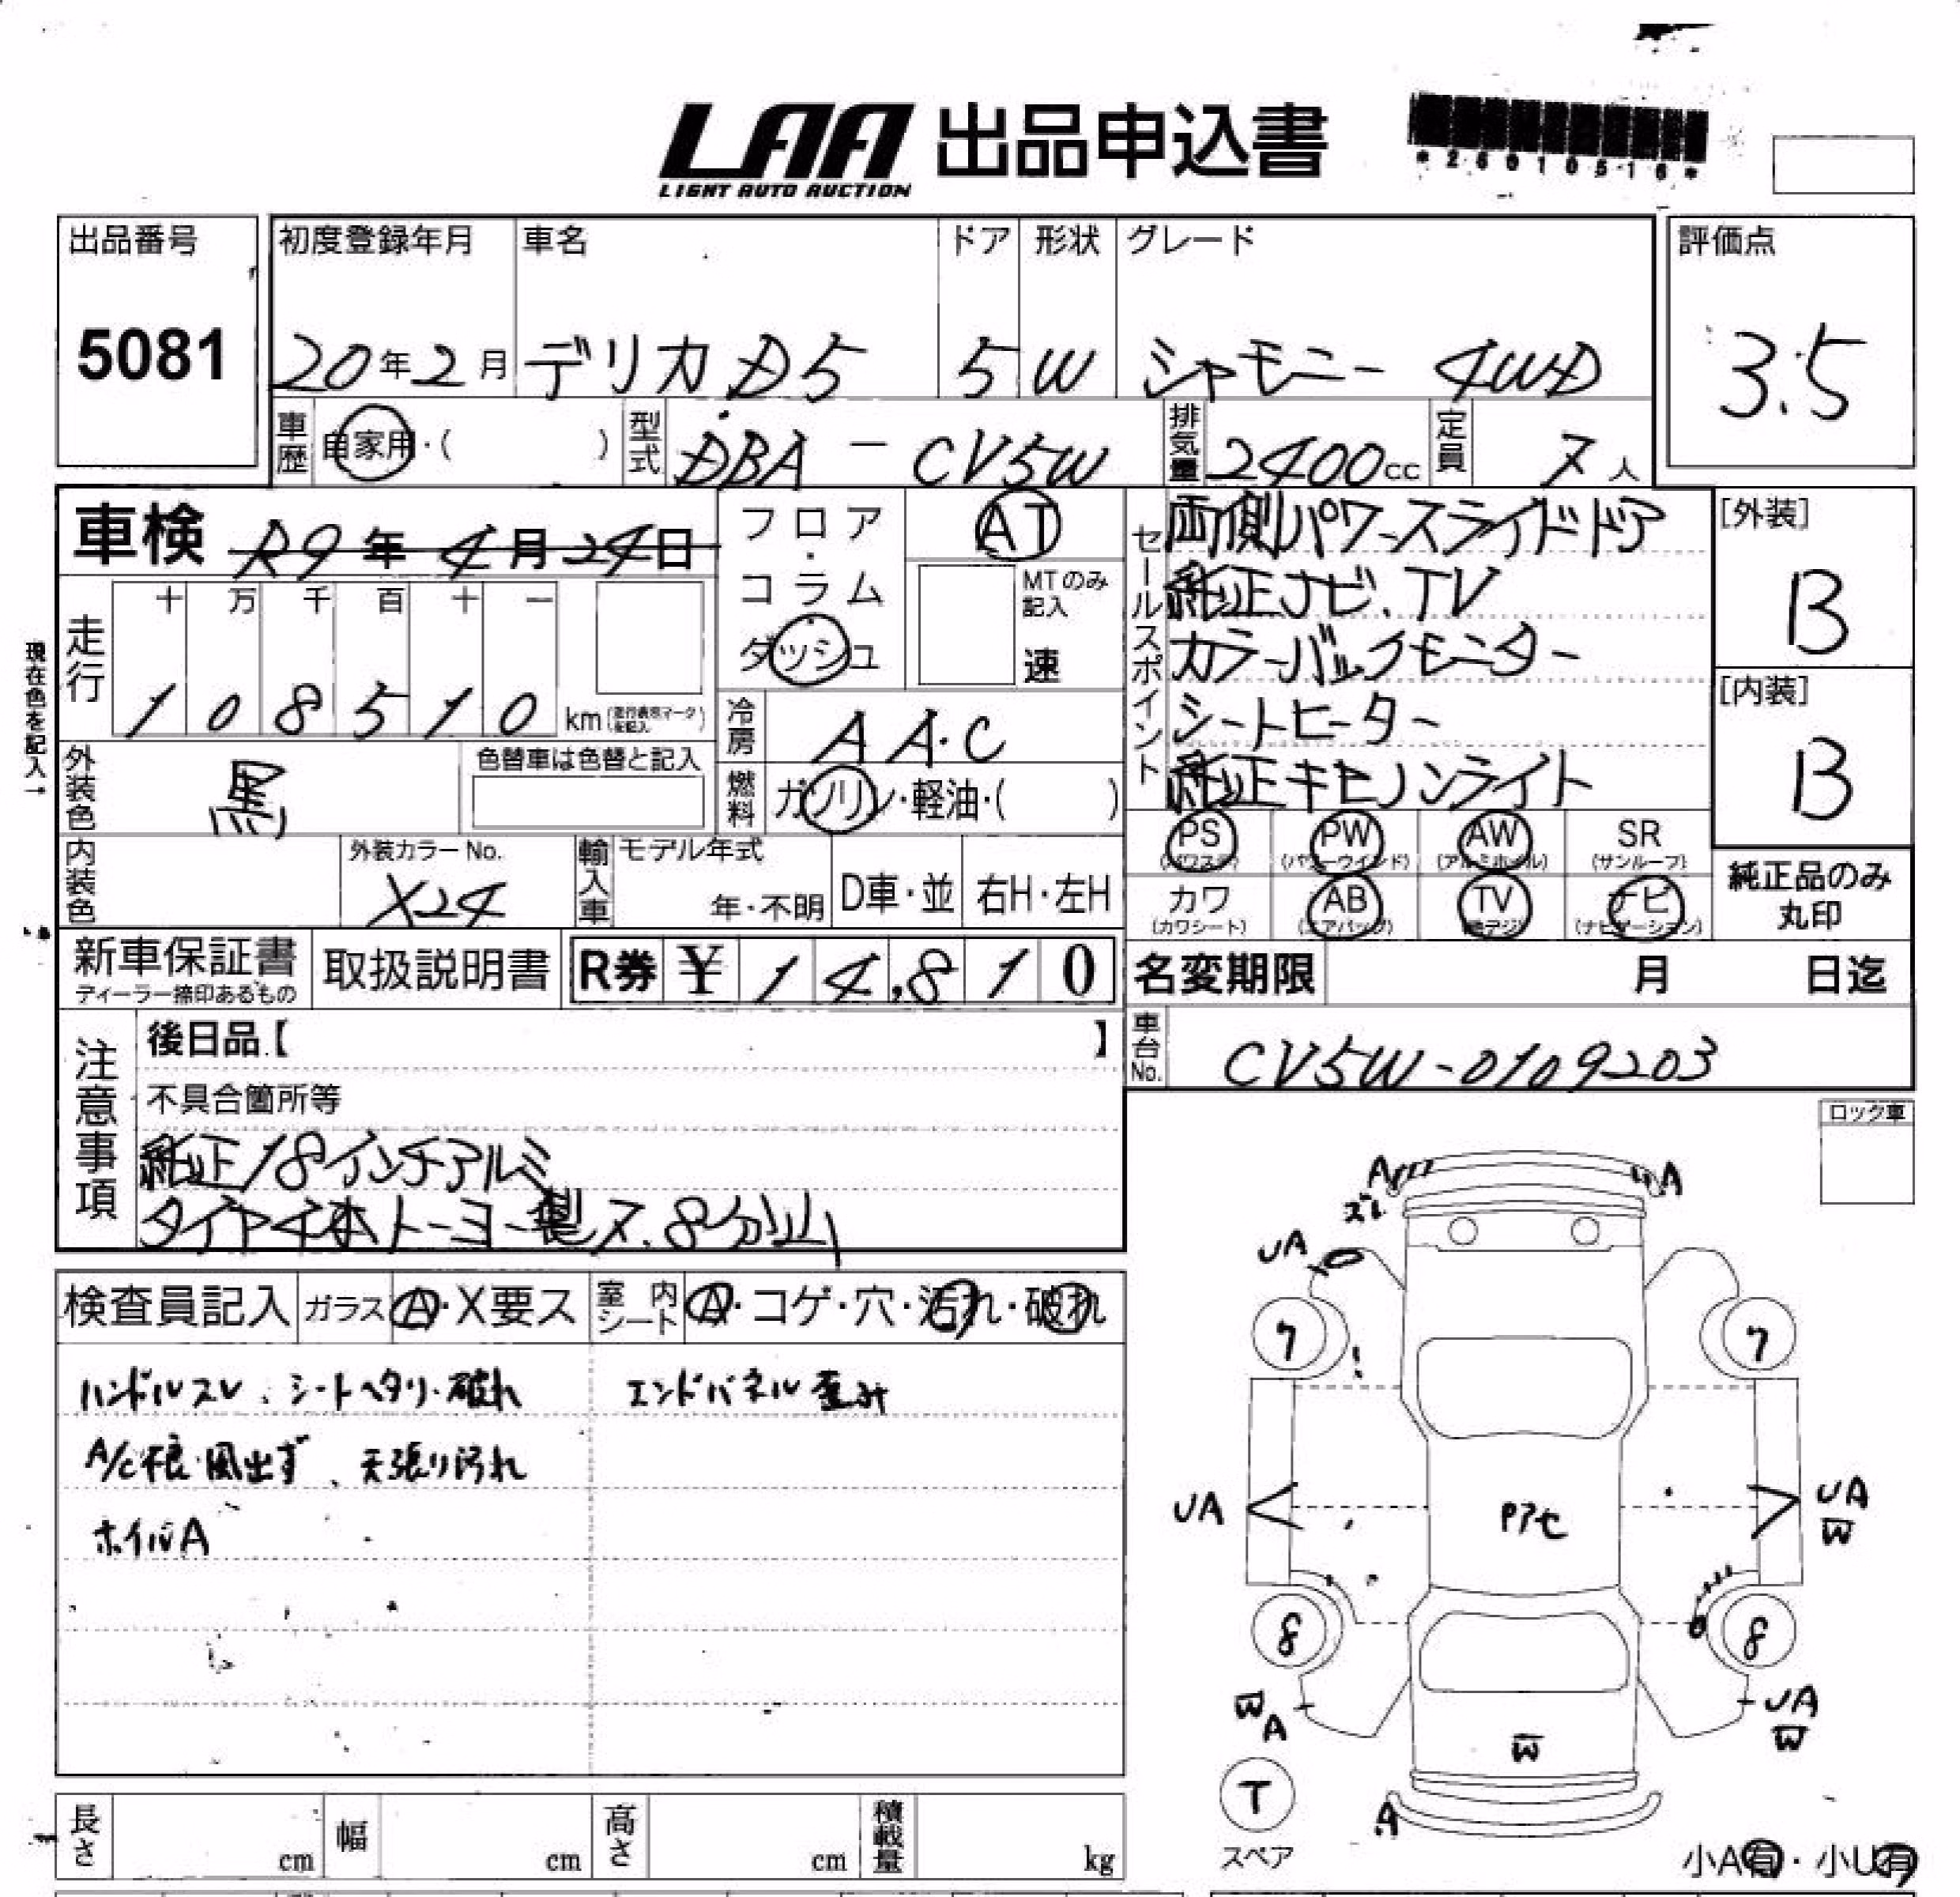 LAA 出品申込書
LIGHT AUTO AUCTION
*26010516*
出品番号 初度登録年月 車名 ドア 形状 グレード 評価点
5081 20年2月 デリカD5 5 W シャモニー 4WD 3.5
車歴 自家用・( ) 型式 DBA-CV5W 排気量 2400cc 定員 7人
車検 R9年4月24日
フロア・コラム・ダッシュ
AT
MTのみ記入
速
セールスポイント
両側パワースライドドア
純正ナビ.TV
カラーバックモニター
シートヒーター
純正キセノンライト
[外装]
B
[内装]
B
現在色を記入→
走行 十 万 千 百 十 一
108510 km
冷房 AA.C
外装色 黒 色替車は色替と記入
燃料 ガソリン・軽油・( )
内装色 外装カラーNo. X24
輸入車 モデル年式 年・不明 D車・並 右H・左H
PS (パワステ) PW (パワーウインド) AW (アルミホイル) SR (サンルーフ)
カワ (カワシート) AB (エアバッグ) TV (地デジ) ナビ (ナビゲーション)
純正品のみ
丸印
新車保証書 取扱説明書 R券 ¥14,810
ディーラー捺印あるもの
名変期限 月 日迄
車台No. CV5W-0109203
注意事項
後日品【 】
不具合箇所等
純正18インチアルミ
タイヤ4本トーヨー製ス.8分山
ロック車
検査員記入 ガラス A・X要ス 室内シート A・コゲ・穴・汚れ・破れ
ハンドルスレ、シートヘタリ・破れ エンドパネル歪み
A/C不良・風出ず、天張り汚れ
ホイルA
A A
ズレ
UA
7 7
UA UA
W
Pアセ
8 8
W
A
UA
W
W
T
スペア
A
小A有・小U有
長さ cm 幅 cm 高さ cm 積載量 kg